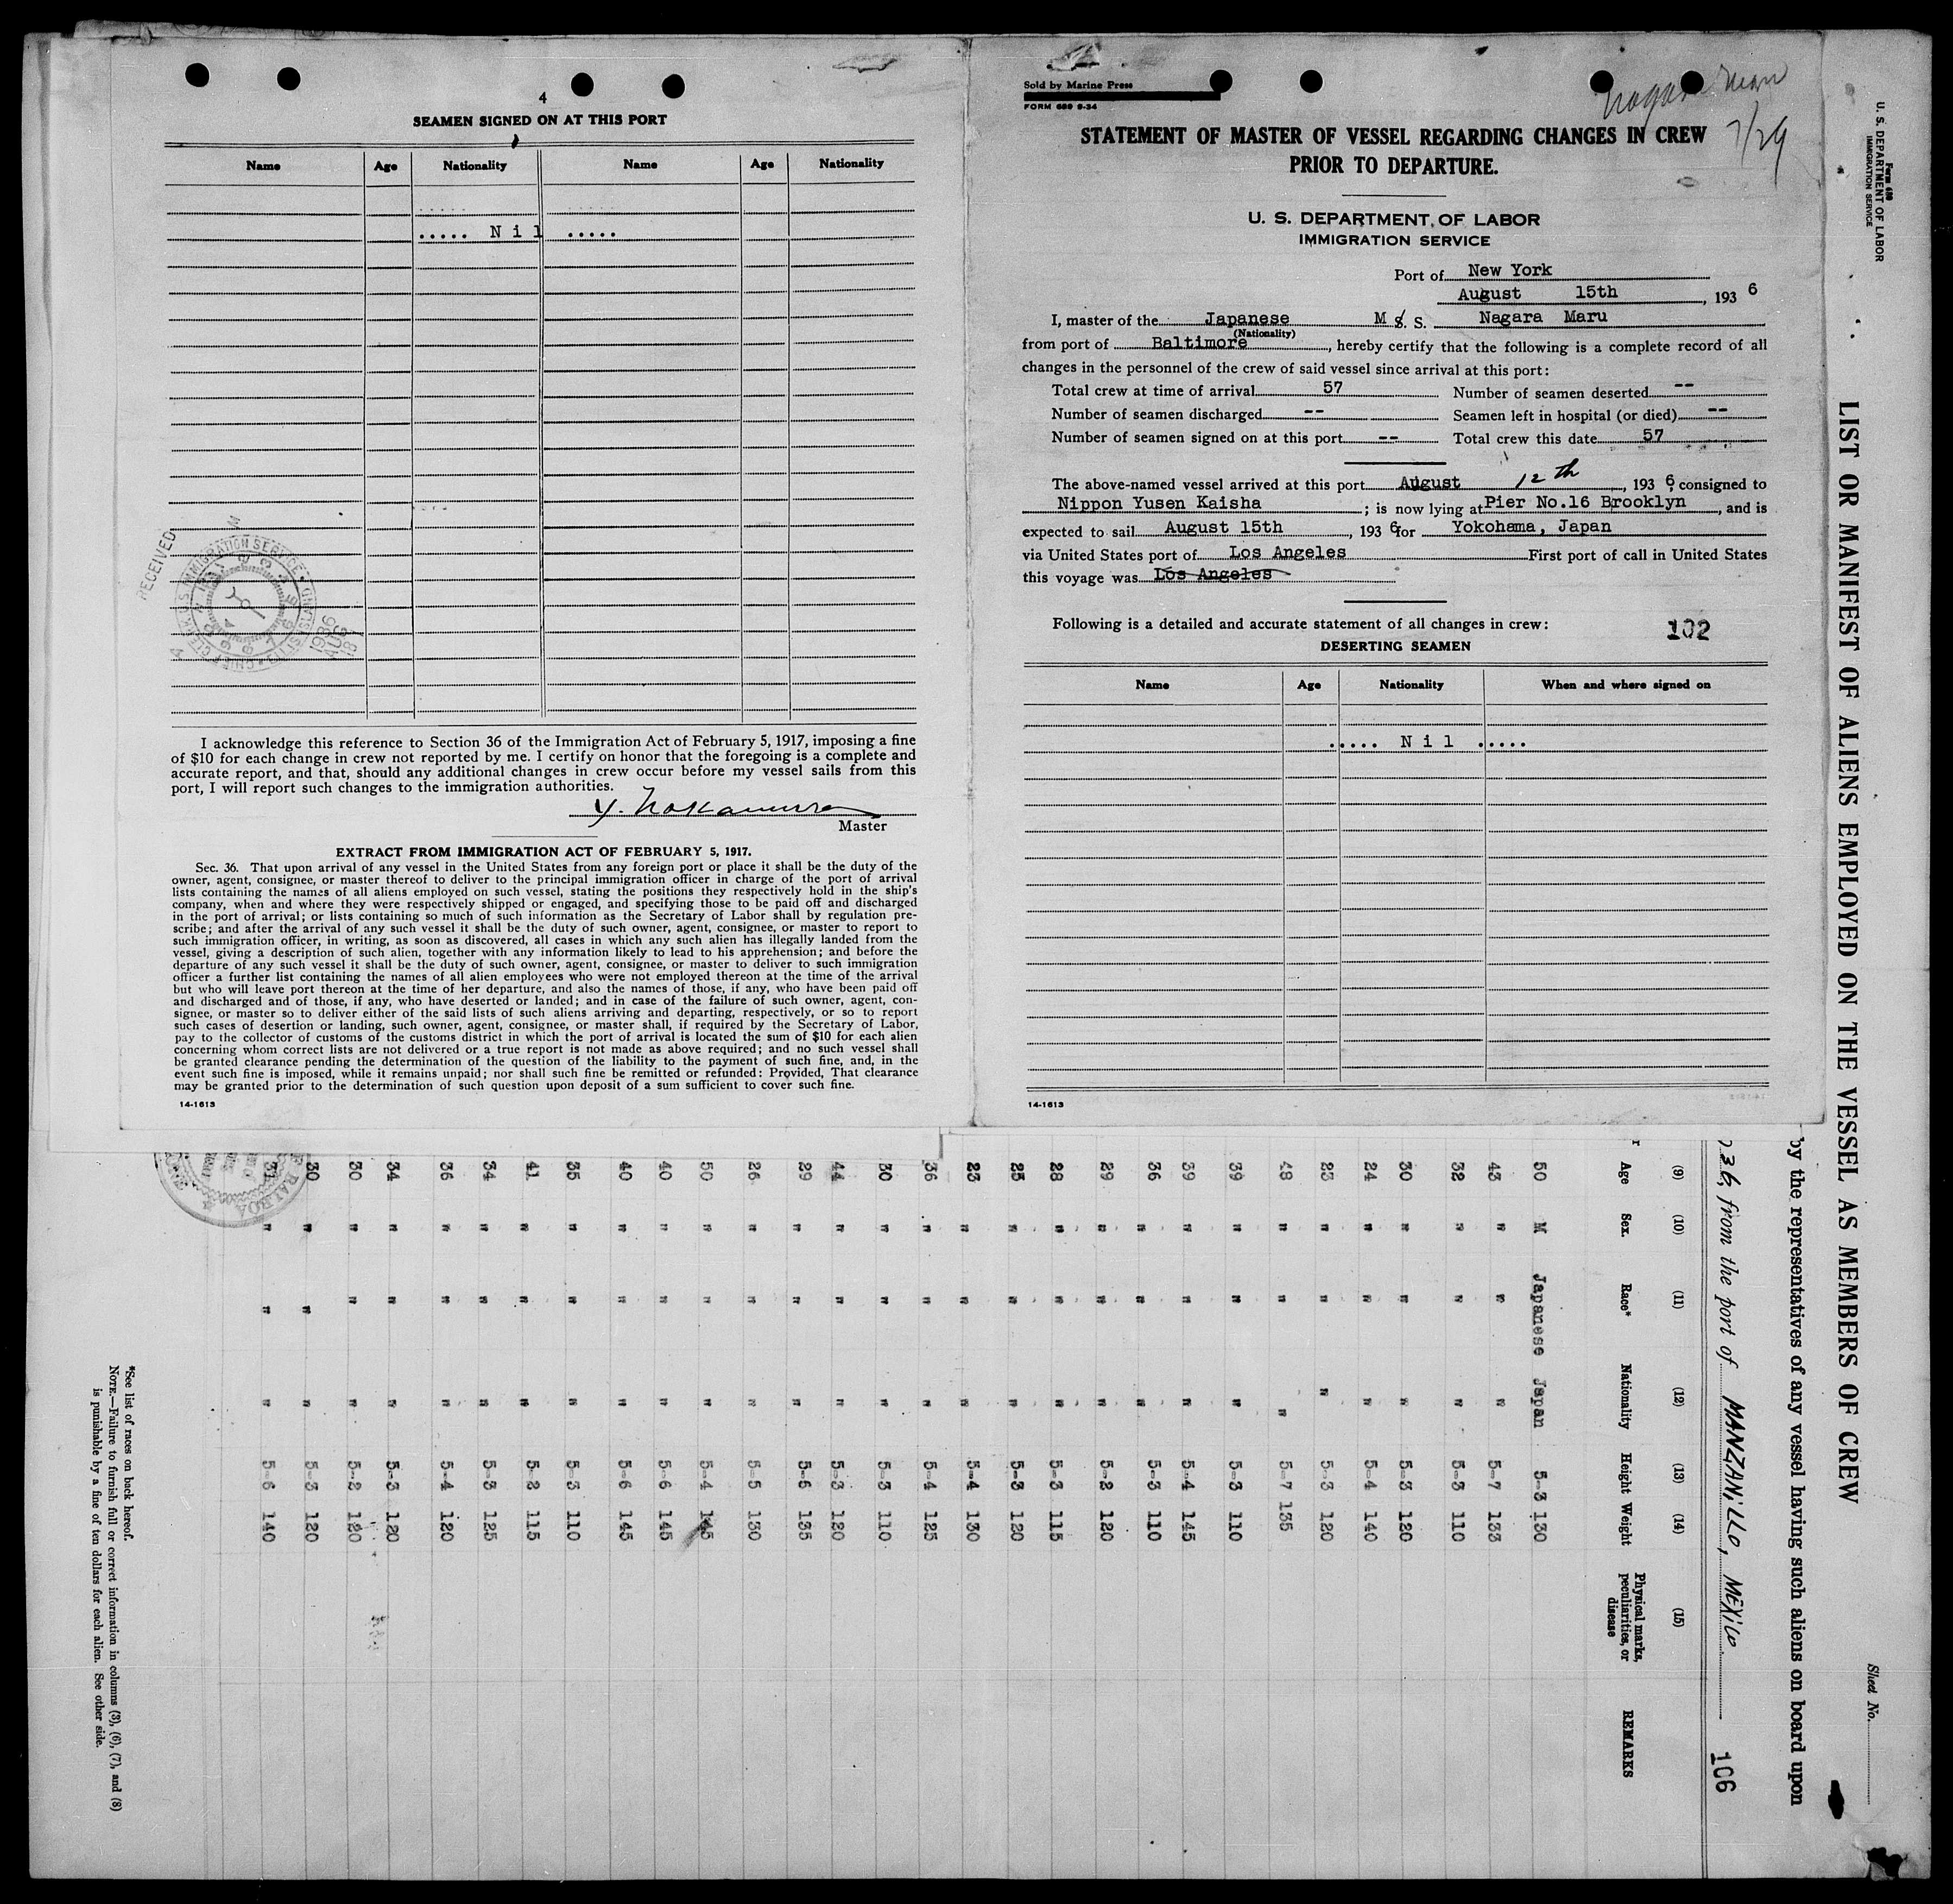 4
SEAMEN SIGNED ON AT THIS PORT
Name Age Nationality Name Age Nationality
..... N i l .....
RECEIVED
1936 AUG 18
I acknowledge this reference to Section 36 of the Immigration Act of February 5, 1917, imposing a fine
of $10 for each change in crew not reported by me. I certify on honor that the foregoing is a complete and
accurate report, and that, should any additional changes in crew occur before my vessel sails from this
port, I will report such changes to the immigration authorities.
Y. Nakamura
Master
EXTRACT FROM IMMIGRATION ACT OF FEBRUARY 5, 1917.
Sec. 36. That upon arrival of any vessel in the United States from any foreign port or place it shall be the duty of the
owner, agent, consignee, or master thereof to deliver to the principal immigration officer in charge of the port of arrival
lists containing the names of all aliens employed on such vessel, stating the positions they respectively hold in the ship's
company, when and where they were respectively shipped or engaged, and specifying those to be paid off and discharged
in the port of arrival; or lists containing so much of such information as the Secretary of Labor shall by regulation pre-
scribe; and after the arrival of any such vessel it shall be the duty of such owner, agent, consignee, or master to report to
such immigration officer, in writing, as soon as discovered, all cases in which any such alien has illegally landed from the
vessel, giving a description of such alien, together with any information likely to lead to his apprehension; and before the
departure of any such vessel it shall be the duty of such owner, agent, consignee, or master to deliver to such immigration
officer a further list containing the names of all alien employees who were not employed thereon at the time of the arrival
but who will leave port thereon at the time of her departure, and also the names of those, if any, who have been paid off
and discharged and of those, if any, who have deserted or landed; and in case of the failure of such owner, agent, con-
signee, or master so to deliver either of the said lists of such aliens arriving and departing, respectively, or so to report
such cases of desertion or landing, such owner, agent, consignee, or master shall, if required by the Secretary of Labor,
pay to the collector of customs of the customs district in which the port of arrival is located the sum of $10 for each alien
concerning whom correct lists are not delivered or a true report is not made as above required; and no such vessel shall
be granted clearance pending the determination of the question of the liability to the payment of such fine, and, in the
event such fine is imposed, while it remains unpaid; nor shall such fine be remitted or refunded: Provided, That clearance
may be granted prior to the determination of such question upon deposit of a sum sufficient to cover such fine.
14-1613
Sold by Marine Press
FORM 689 9-34
Nagara Maru
7/29
STATEMENT OF MASTER OF VESSEL REGARDING CHANGES IN CREW
PRIOR TO DEPARTURE.
U. S. DEPARTMENT OF LABOR
IMMIGRATION SERVICE
Port of New York
August 15th, 1936
I, master of the Japanese M S. S. Nagara Maru
(Nationality)
from port of Baltimore, hereby certify that the following is a complete record of all
changes in the personnel of the crew of said vessel since arrival at this port:
Total crew at time of arrival 57 Number of seamen deserted --
Number of seamen discharged -- Seamen left in hospital (or died) --
Number of seamen signed on at this port -- Total crew this date 57
The above-named vessel arrived at this port August 12th, 1936, consigned to
Nippon Yusen Kaisha; is now lying at Pier No.16 Brooklyn, and is
expected to sail August 15th, 1936 for Yokohama, Japan
via United States port of Los Angeles First port of call in United States
this voyage was Los Angeles
Following is a detailed and accurate statement of all changes in crew:
102
DESERTING SEAMEN
Name Age Nationality When and where signed on
..... N i l .....
14-1613
Form 689
U. S. DEPARTMENT OF LABOR
IMMIGRATION SERVICE
LIST OR MANIFEST OF ALIENS EMPLOYED ON THE VESSEL AS MEMBERS OF CREW
Sheet No.
by the representatives of any vessel having such aliens on board upon
36, from the port of MANZANILLO, MEXICO
106
(9) (10) (11) (12) (13) (14) (15)
Age Sex. Race* Nationality Height Weight Physical marks, peculiarities, or disease REMARKS
50 M Japanese Japan 5-3 130
43 " " " 5-7 133
32 " " " 5-3 110
30 " " " 5-3 120
24 " " " 5-4 140
23 " " " 5-3 120
48 " " " 5-7 135
39 " " " 5-3 110
39 " " " 5-4 145
36 " " " 5-3 110
29 " " " 5-2 120
28 " " " 5-3 115
25 " " " 5-3 120
23 " " " 5-4 130
36 " " " 5-4 125
30 " " " 5-3 110
44 " " " 5-3 120
29 " " " 5-6 135
26 " " " 5-5 130
50 " " " 5-4 145
40 " " " 5-6 145
40 " " " 5-6 145
35 " " " 5-3 110
41 " " " 5-2 115
34 " " " 5-3 125
36 " " " 5-4 120
34 " " " 5-3 120
30 " " " 5-2 120
30 " " " 5-3 120
31 " " " 5-6 140
BALBOA
*See list of races on back hereof.
NOTE.—Failure to furnish full or correct information in columns (3), (6), (7), and (8)
is punishable by a fine of ten dollars for each alien. See other side.